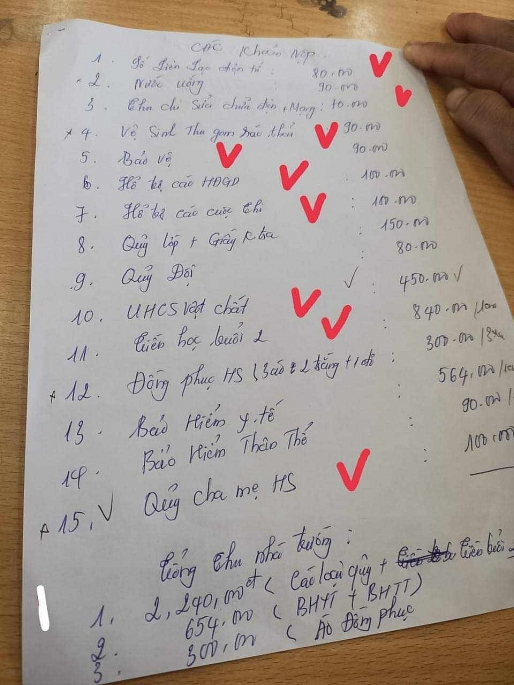 CÁC Khoản Nộp.
1. Sổ Liên Lạc điện tử : 80.000
2. Nước uống : 90.000
3. Thu chi Sửa chữa điện + Mạng : 70.000
4. Vệ Sinh Thu gom rác thải 90.000
5. Bảo vệ 90.000
6. Hỗ trợ các HĐGD : 100.000
7. Hỗ trợ các cuộc thi : 100.000
8. Quỹ lớp + Giấy K.tra : 150.000
9. Quỹ Đội : 80.000
10. UHCS vật chất : 450.000
11. Tiền học buổi 2 : 840.000
12. Đồng phục HS (3 áo : 2 trắng + 1 đỏ : 300.000
13. Bảo Hiểm y tế : 564.000
14. Bảo Hiểm Thân Thể : 90.000
15. Quỹ cha mẹ HS : 100.000
Tổng thu nhà trường :
1. 2,240,000đ ( Các loại quỹ + Tiền buổi
2. 654.000 ( BHYT + BHTT)
3. 300.000 ( Áo Đồng phục